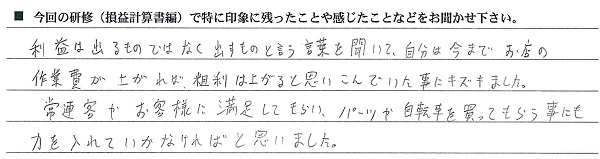 ■ 今回の研修（損益計算書編）で特に印象に残ったことや感じたことなどをお聞かせ下さい。
利益は出るものではなく出すものと言う言葉を聞いて、自分は今までお店の
作業費が上がれば、粗利は上がると思いこんでいた事にキズキました。
常連客がお客様に満足してもらい、パーツが自転車を買ってもらう事にも
力を入れていかなければと思いました。